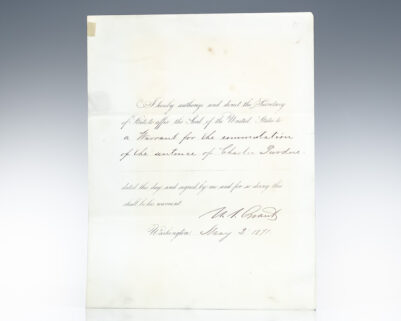 I hereby authorize and direct the Secretary
of State to affix the Seal of the United States to
a Warrant for the commutation
of the sentence of Charles Perdue
dated this day and signed by me and for so doing this
shall be his warrant
U. S. Grant
Washington May 3 1871